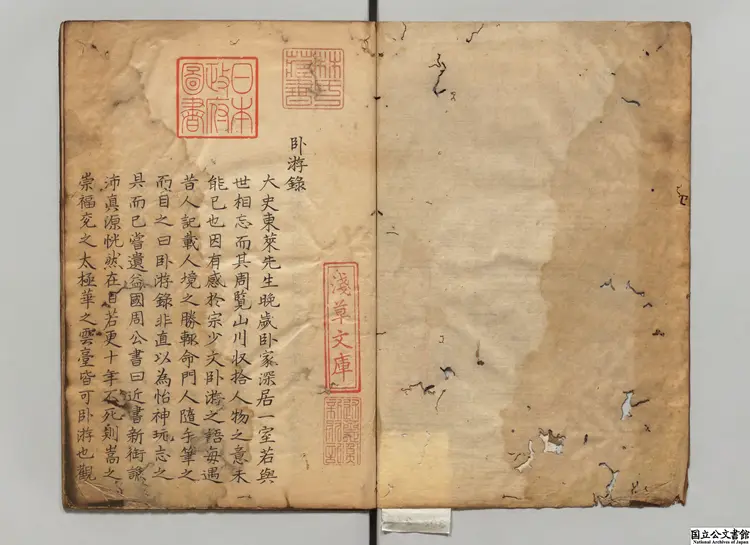 林氏
藏書
日本
政府
圖書
卧游錄
大史東萊先生晚歲卧家深居一室若與
世相忘而其周覽山川収拾人物之意未
能已也因有感於宗少文卧游之語每遇
昔人記載人境之勝輙命門人隨手筆之
而目之曰卧游錄非直以為怡神玩志之
具而已嘗遺益國周公書曰近書新銜譙
沛真源恍然在目若更十年不死則嵩之
崇福兖之太極華之雲臺皆可卧游也觀
淺草文庫
国立公文書館
National Archives of Japan